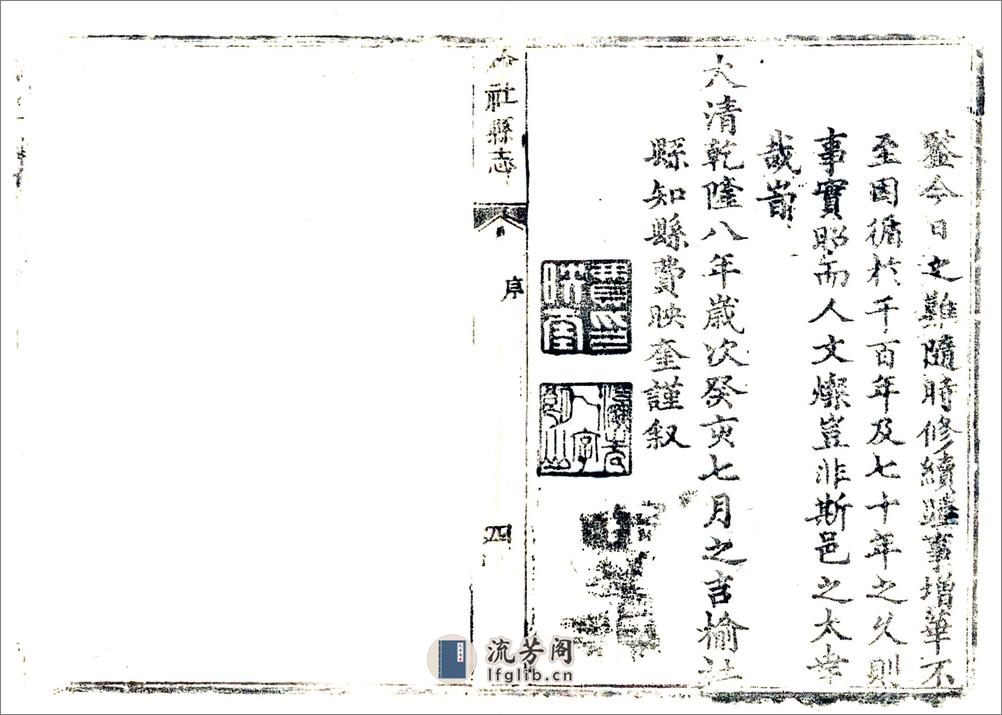 鑒今日之難隨時修續踵事增華不
至因循於千百年及七十年之久則
事實昭而人文燦豈非斯邑之太幸
哉旹
大清乾隆八年歲次癸亥七月之吉榆社
縣知縣費映奎謹叙
費印
映奎
社縣志
序
四
流芳阁
lfglib.cn